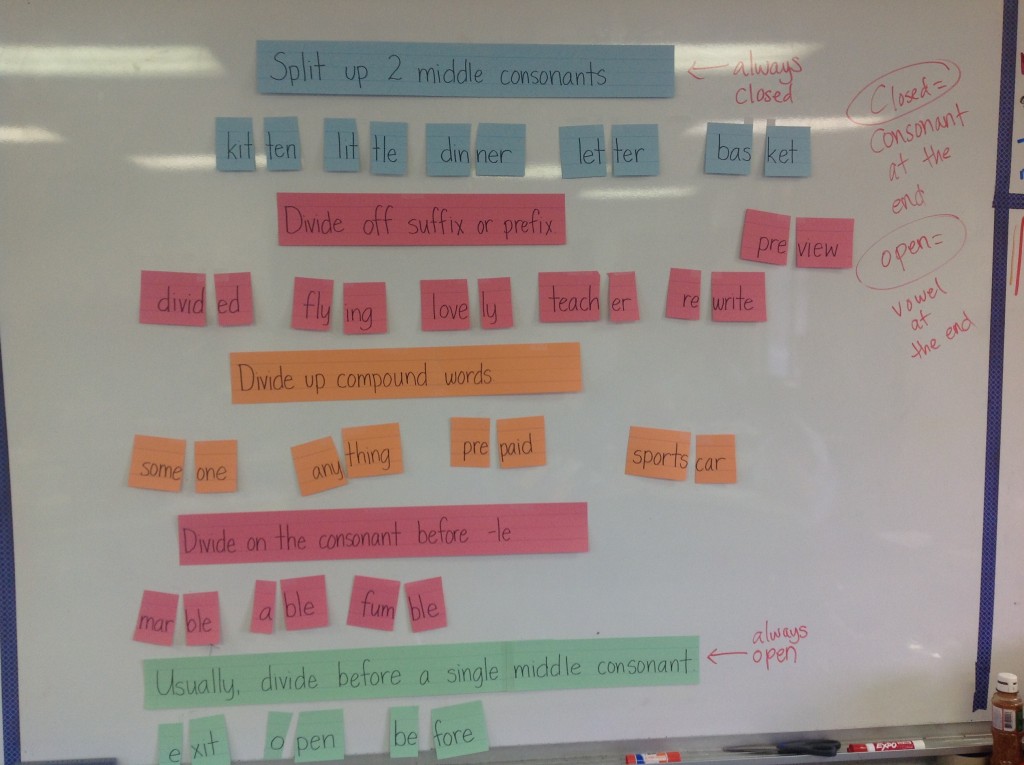 Split up 2 middle consonants
← always
closed
Closed=
Consonant
at the
end
kit ten lit tle din ner let ter bas ket
Divide off suffix or prefix
pre view
open=
vowel
at
the end
divid ed fly ing love ly teach er re write
Divide up compound words
some one any thing pre paid sports car
Divide on the consonant before -le
mar ble a ble fum ble
Usually, divide before a single middle consonant
← always
open
e xit o pen be fore
EXPO